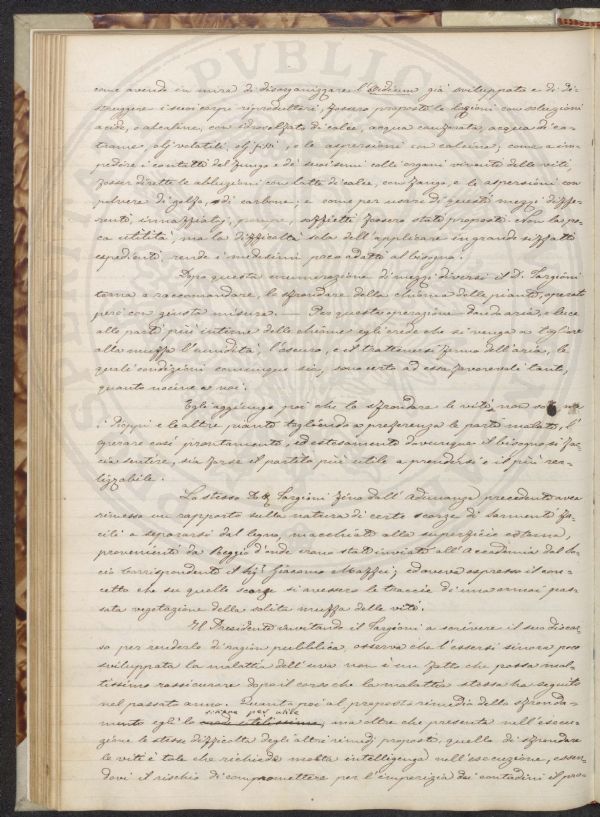 come avendo in mira di disorganizzare l'Oidium già sviluppato e di di-
struggere i suoi corpi riproduttori, fossero proposte le lozioni con soluzioni
acide, o alcaline, con idrosolfato di calce, acqua canforata, acqua di ca-
trame, olj volatili, olj fissi, e le aspersioni con calcina; come a im-
pedire i contatti del fungo e de' suoi semi colli organi viventi delle viti,
fosser dirette le abluzioni con latte di calce, con fango, e le aspersioni con
polvere di zolfo, o di carbone; e come per usare di questi mezzi diffe-
renti, innaffiatoj, pompe, soffietti fossero stati proposti. Non la po-
ca utilità, ma la difficoltà sola dell'applicare in grande siffatti
espedienti, rende i medesimi poco adatti al bisogno.
Dopo questa enumerazione di mezzi diversi il D. Targioni
torna a raccomandare, lo sfrondare della chioma delle piante, operato
però con giusta misura. — Per questa operazione dando aria, e luce
alle parti più interne delle chiome egli crede che si venga a togliere
alla muffa l'umidità, l'oscuro, e il trattenersi fermo dell'aria, le
quali condizioni comunque sia, sono certo ad essa favorevoli tanto,
quanto nocive a noi.
Egli aggiunge poi che lo sfrondare le viti, non solo ma
i pioppi e le altre piante togliendo a preferenza le parti malate, l'
operare così prontamente, ed estesamente dovunque il bisogno si fac-
cia sentire, sia forse il partito più utile a prendersi e il più rea-
lizzabile.
Lo stesso D. Targioni fino dall'Adunanza precedente avea
rimesso un rapporto sulla natura di certe scorze di sarmenti fa-
cili a separarsi dal legno, macchiate alla superficie esterna,
provenienti da Reggio d'onde erano state inviate all'Accademia dal So-
cio Corrispondente il Sig. Giacomo Maffei; ed aveva espresso il con-
cetto che su quelle scorze si avessero le traccie di una omai pas-
sata vegetazione della solita muffa delle viti.
Il Presidente invitando il Targioni a scrivere il suo discor-
so per renderlo di ragion pubblica, osserva che l'essersi sinora poco
sviluppata la malattia dell'uva non è un fatto che possa mol-
tissimo rassicurare dopo il corso che la malattia stessa ha seguito
nel passato anno. Quanto poi al proposto rimedio dello sfronda-
mento egli lo ritiene per utile, ma oltre che presenta nell'esecu-
zione le stesse difficoltà degli altri rimedj proposti, quello di sfrondare
le viti è tale che richiede molta intelligenza nell'esecuzione, essen-
dovi il rischio di compromettere per l'imperizia dei contadini il pro-